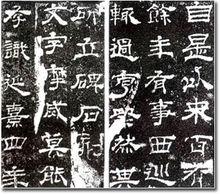 自是以來百有
餘年有事西巡
輒過亨祭然其
所立碑石刻
文字摩滅莫能
存識延熹四年